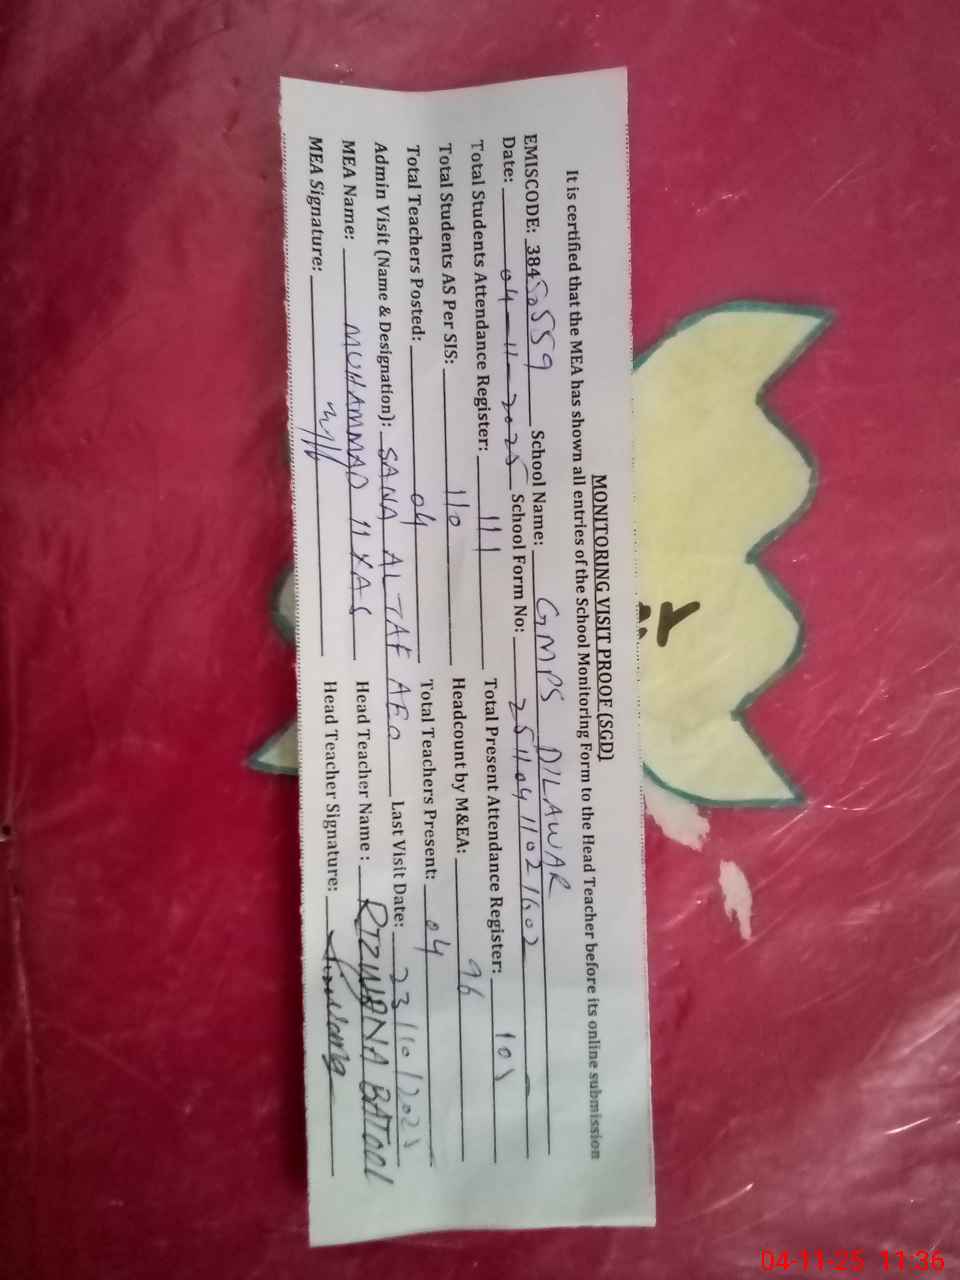 MONITORING VISIT PROOF (SGD)
It is certified that the MEA has shown all entries of the School Monitoring Form to the Head Teacher before its online submission
EMISCODE: 38450559 School Name: GMPS DILAWAR
Date: 04-11-2025 School Form No: 25110411021602
Total Students Attendance Register: 111 Total Present Attendance Register: 101
Total Students AS Per SIS: 110 Headcount by M&EA: 96
Total Teachers Posted: 04 Total Teachers Present: 04
Admin Visit (Name & Designation): SANA ALTAF AEO Last Visit Date: 23/10/2025
MEA Name: MUHAMMAD ILYAS Head Teacher Name : RIZWANA BATOOL
MEA Signature: Head Teacher Signature:
04-11-25 11:36